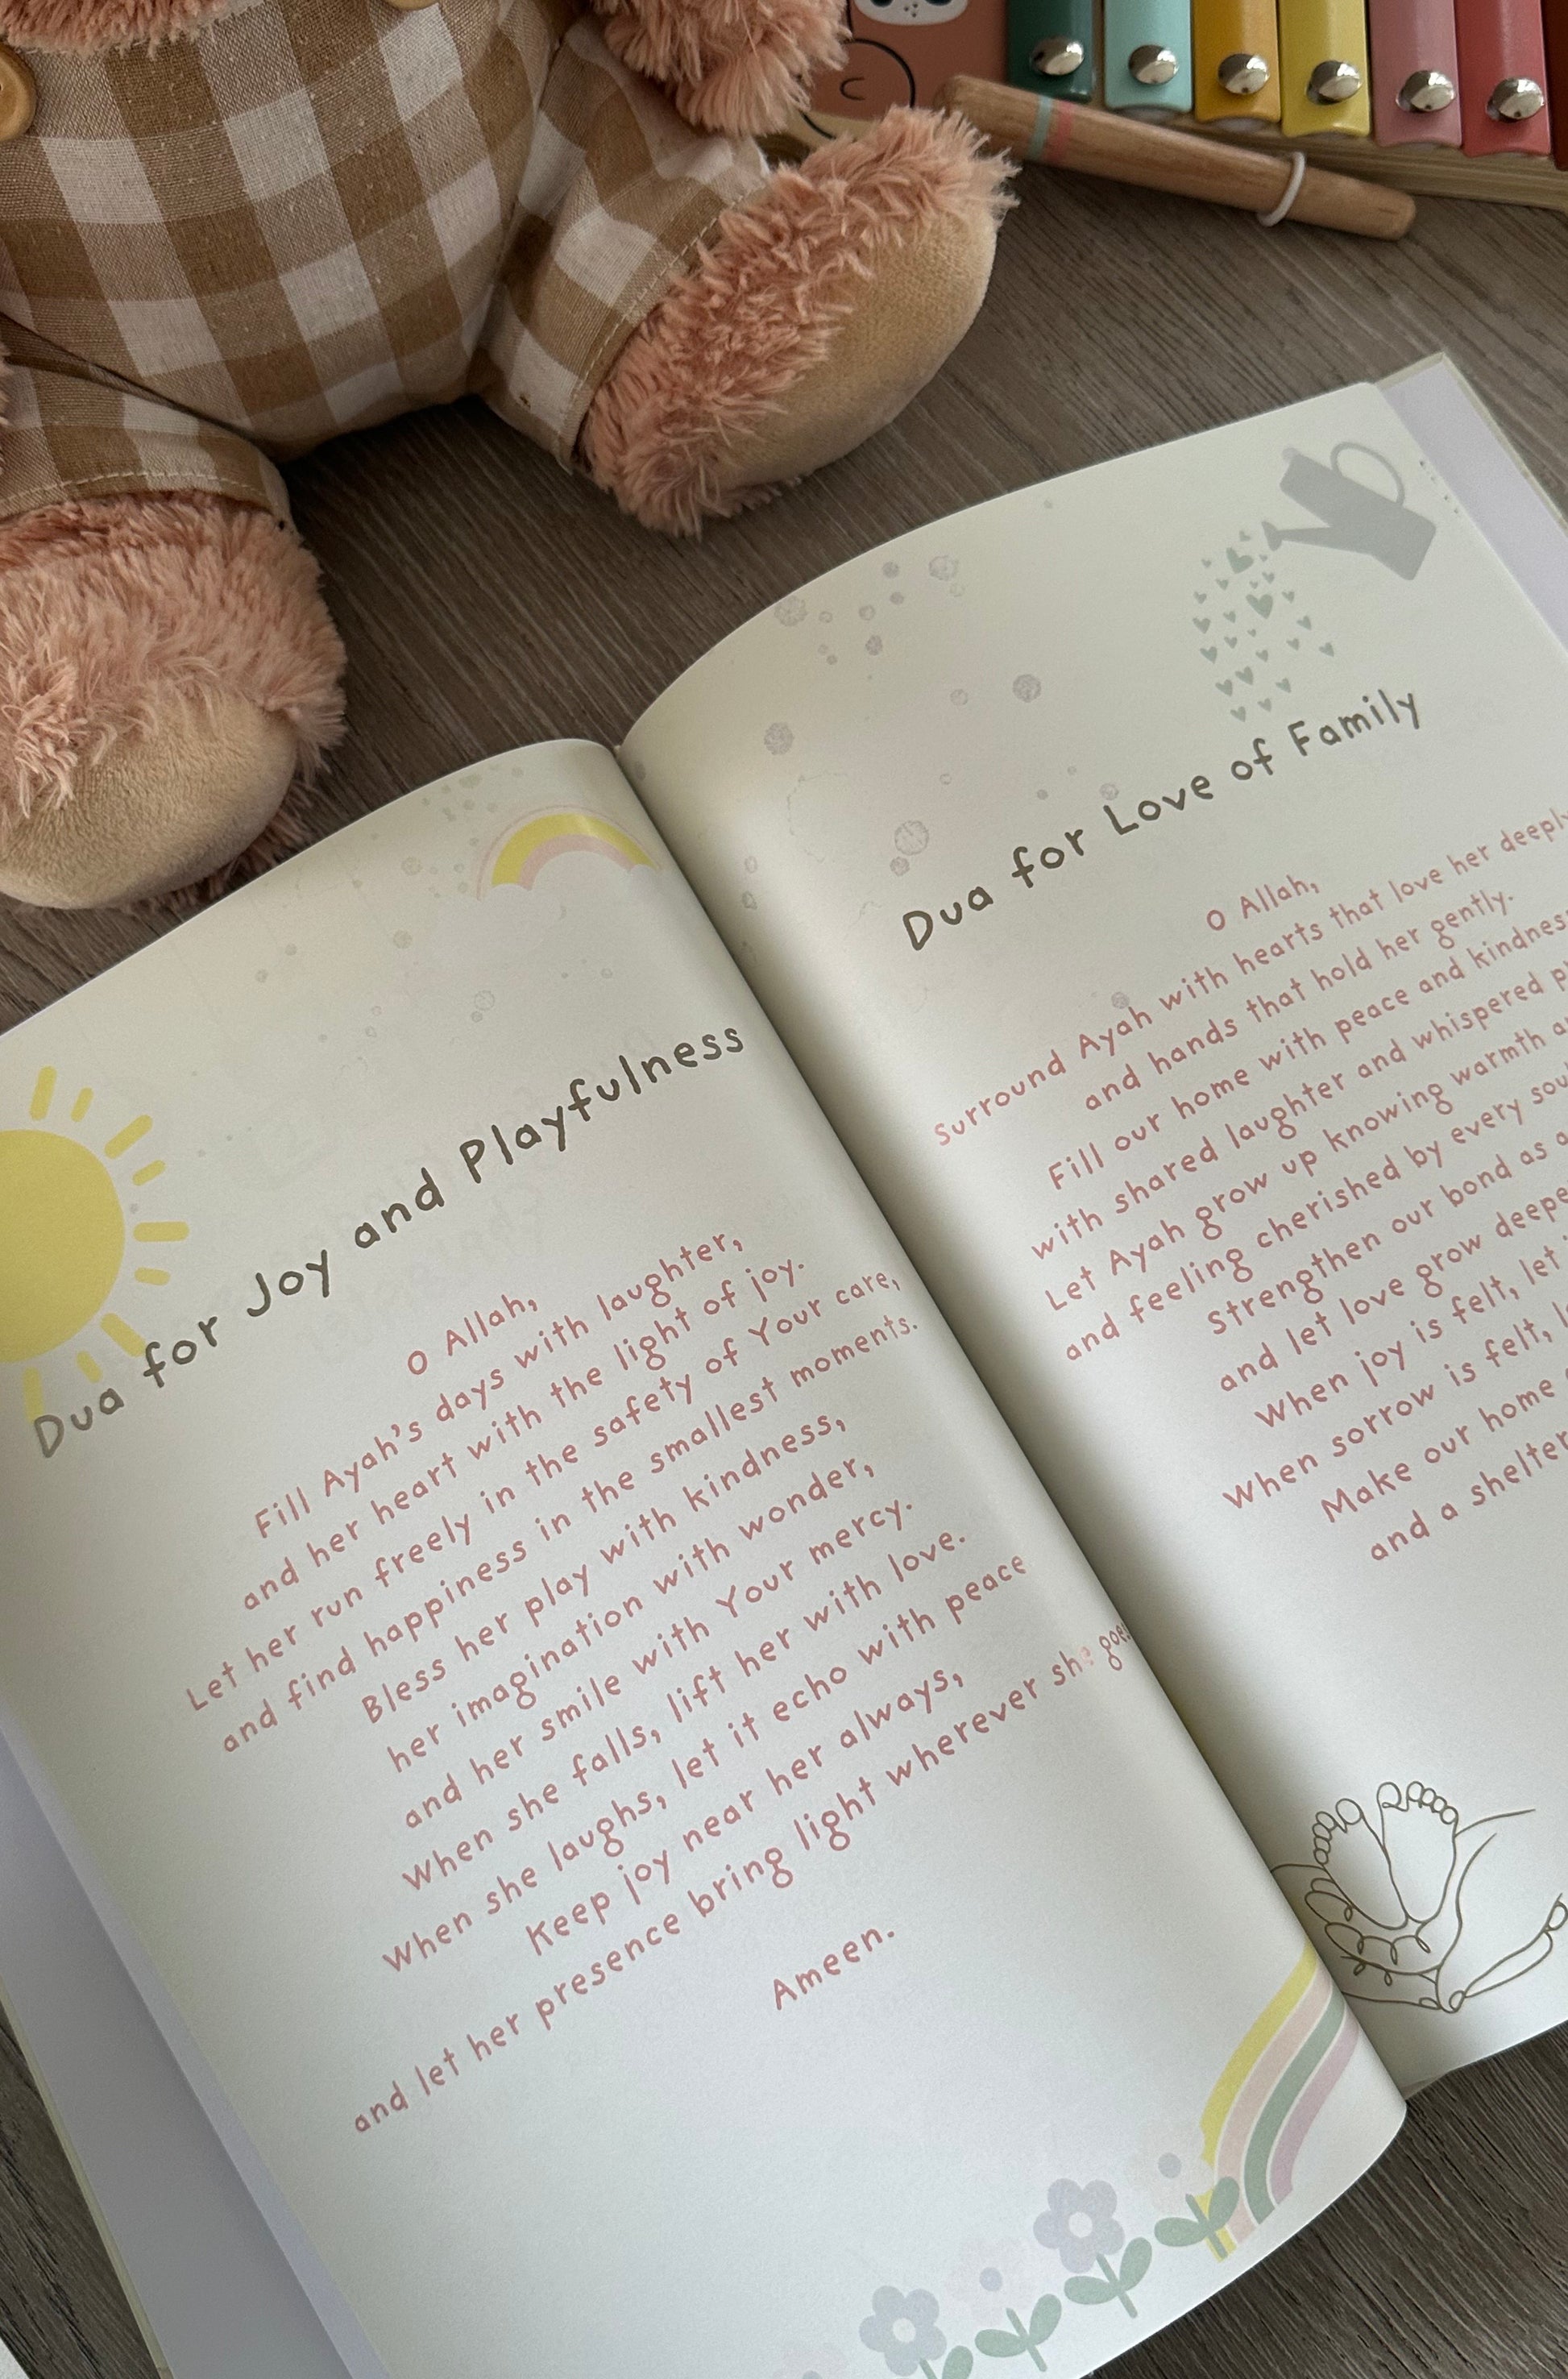 Dua for Joy and Playfulness
O Allah,
Fill Ayah's days with laughter,
and her heart with the light of joy.
Let her run freely in the safety of Your care,
and find happiness in the smallest moments.
Bless her play with kindness,
her imagination with wonder,
and her smile with Your mercy.
When she falls, lift her with love.
When she laughs, let it echo with peace
Keep joy near her always,
and let her presence bring light wherever she
Ameen.
Dua for Love of Family
O Allah,
Surround Ayah with hearts that love her deeply
and hands that hold her gently.
Fill our home with peace and kindness
with shared laughter and whispered
Let Ayah grow up knowing warmth
and feeling cherished by every
Strengthen our bond as
and let love grow
When joy is felt, let
When sorrow is felt,
Make our home
and a shelter